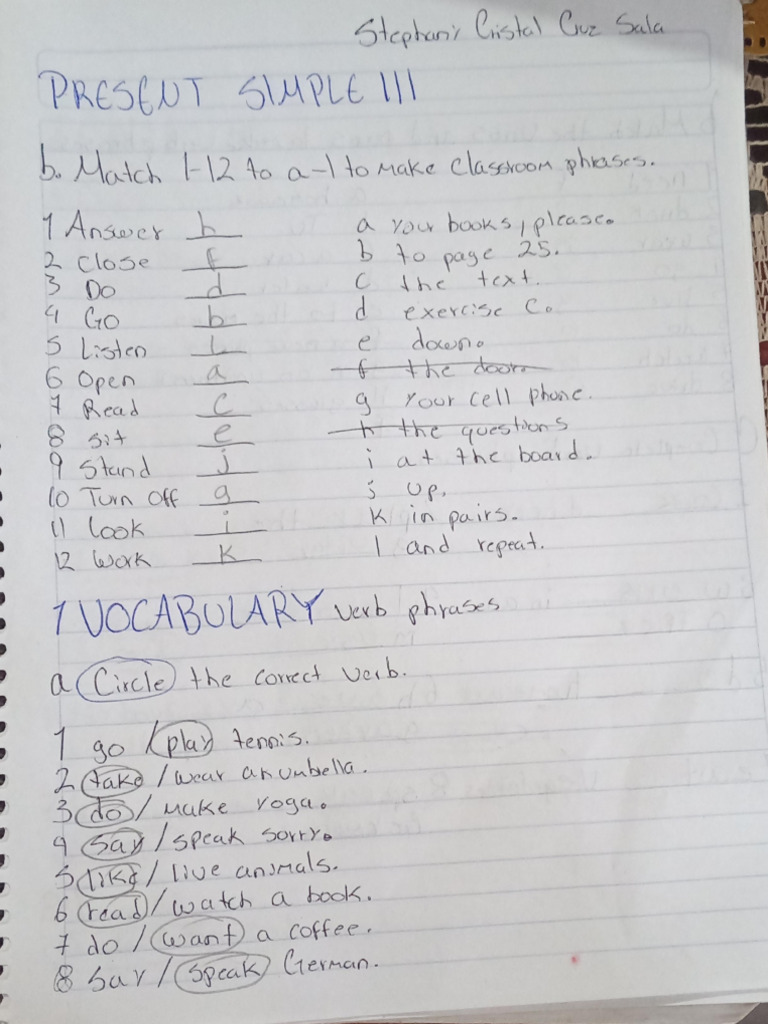 Stephani Cristal Cruz Sala
PRESENT SIMPLE III
b. Match 1-12 to a-l to make classroom phrases.
1 Answer h a your books, please.
2 Close f b to page 25.
3 Do d c the text.
4 Go b d exercise c.
5 Listen L e down.
6 Open a f the door.
7 Read c g your cell phone.
8 sit e h the questions
9 Stand j i at the board.
10 Turn off g j up.
11 look i k in pairs.
12 work k l and repeat.
1 VOCABULARY verb phrases
a Circle the correct verb.
1 go / play tennis.
2 take / wear an umbella.
3 do / make yoga.
4 say / speak sorry.
5 like / live animals.
6 read / watch a book.
7 do / want a coffee.
8 Say / speak German.